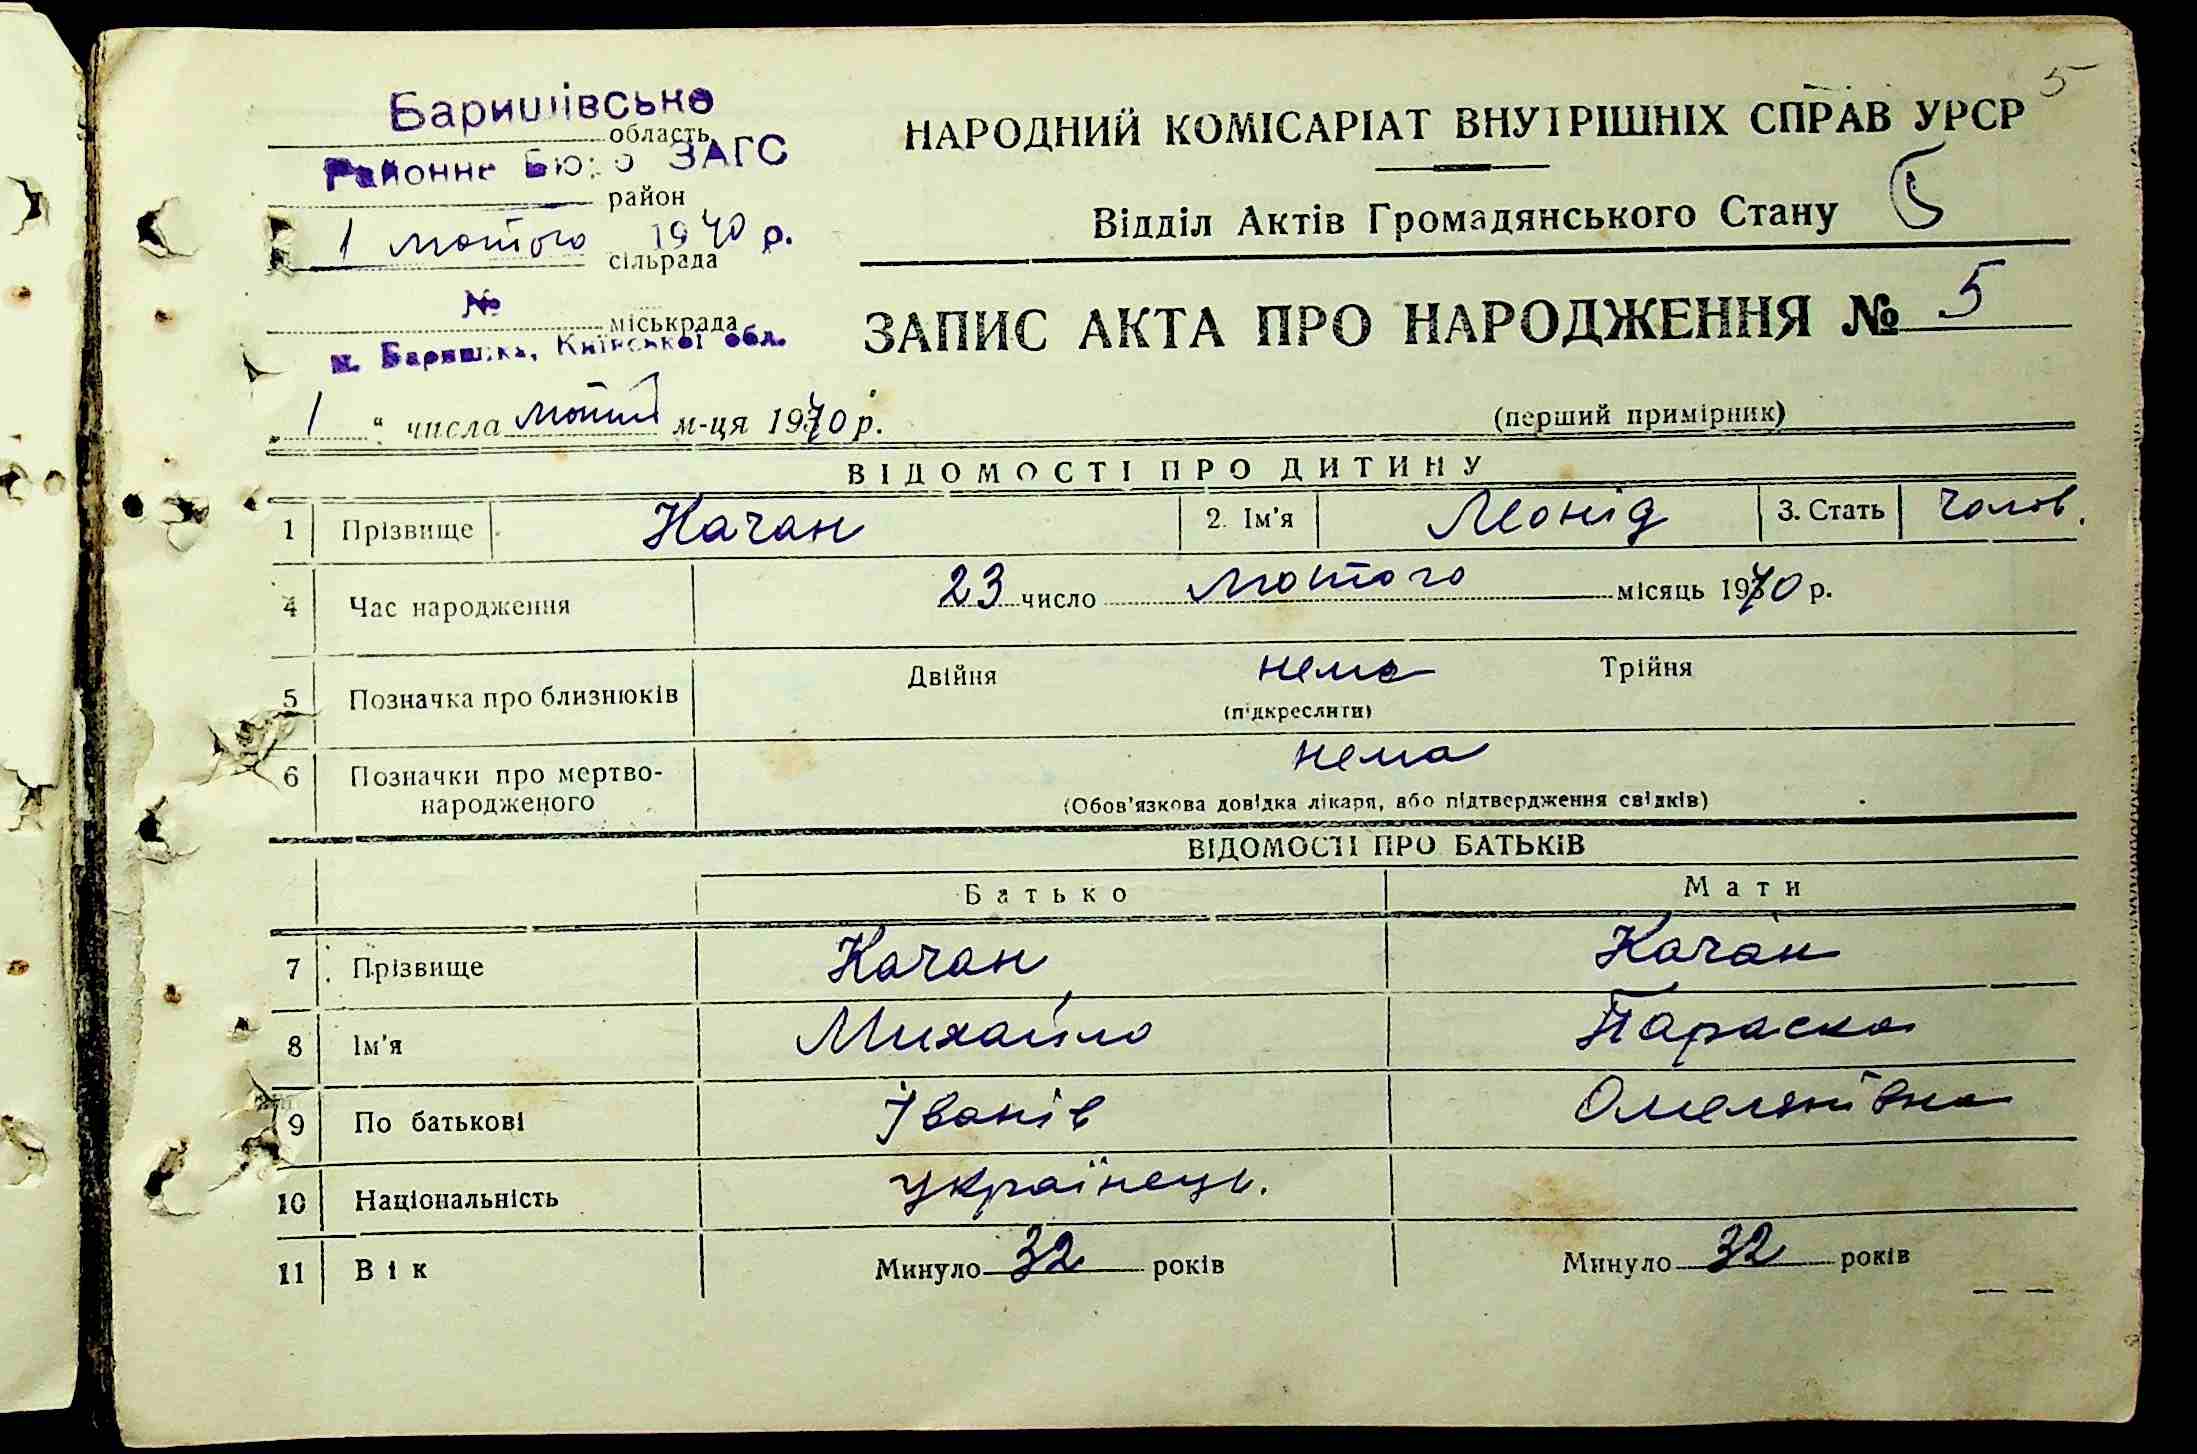 5
Баришівське
область
Районне Бюро ЗАГС
район
1 лютого 1940 р.
сільрада
№
міськрада
м. Баришівка, Київської обл.
НАРОДНИЙ КОМІСАРІАТ ВНУТРІШНІХ СПРАВ УРСР
Відділ Актів Громадянського Стану 5
ЗАПИС АКТА ПРО НАРОДЖЕННЯ № 5
„ 1 “ числа м-ця 1940 р.
(перший примірник)
ВІДОМОСТІ ПРО ДИТИНУ
1 Прізвище Качан 2. Ім'я Леонід 3. Стать чолов.
4 Час народження 23 число лютого місяць 1940 р.
5 Позначка про близнюків Двійня нема Трійня
(підкреслити)
6 Позначки про мертво-
народженого
нема
(Обов'язкова довідка лікаря, або підтвердження свідків)
ВІДОМОСТІ ПРО БАТЬКІВ
Батько Мати
7 Прізвище Качан Качан
8 Ім'я Михайло Параска
9 По батькові Іванів Омелянівна
10 Національність українець.
11 Вік Минуло 32 років Минуло 32 років